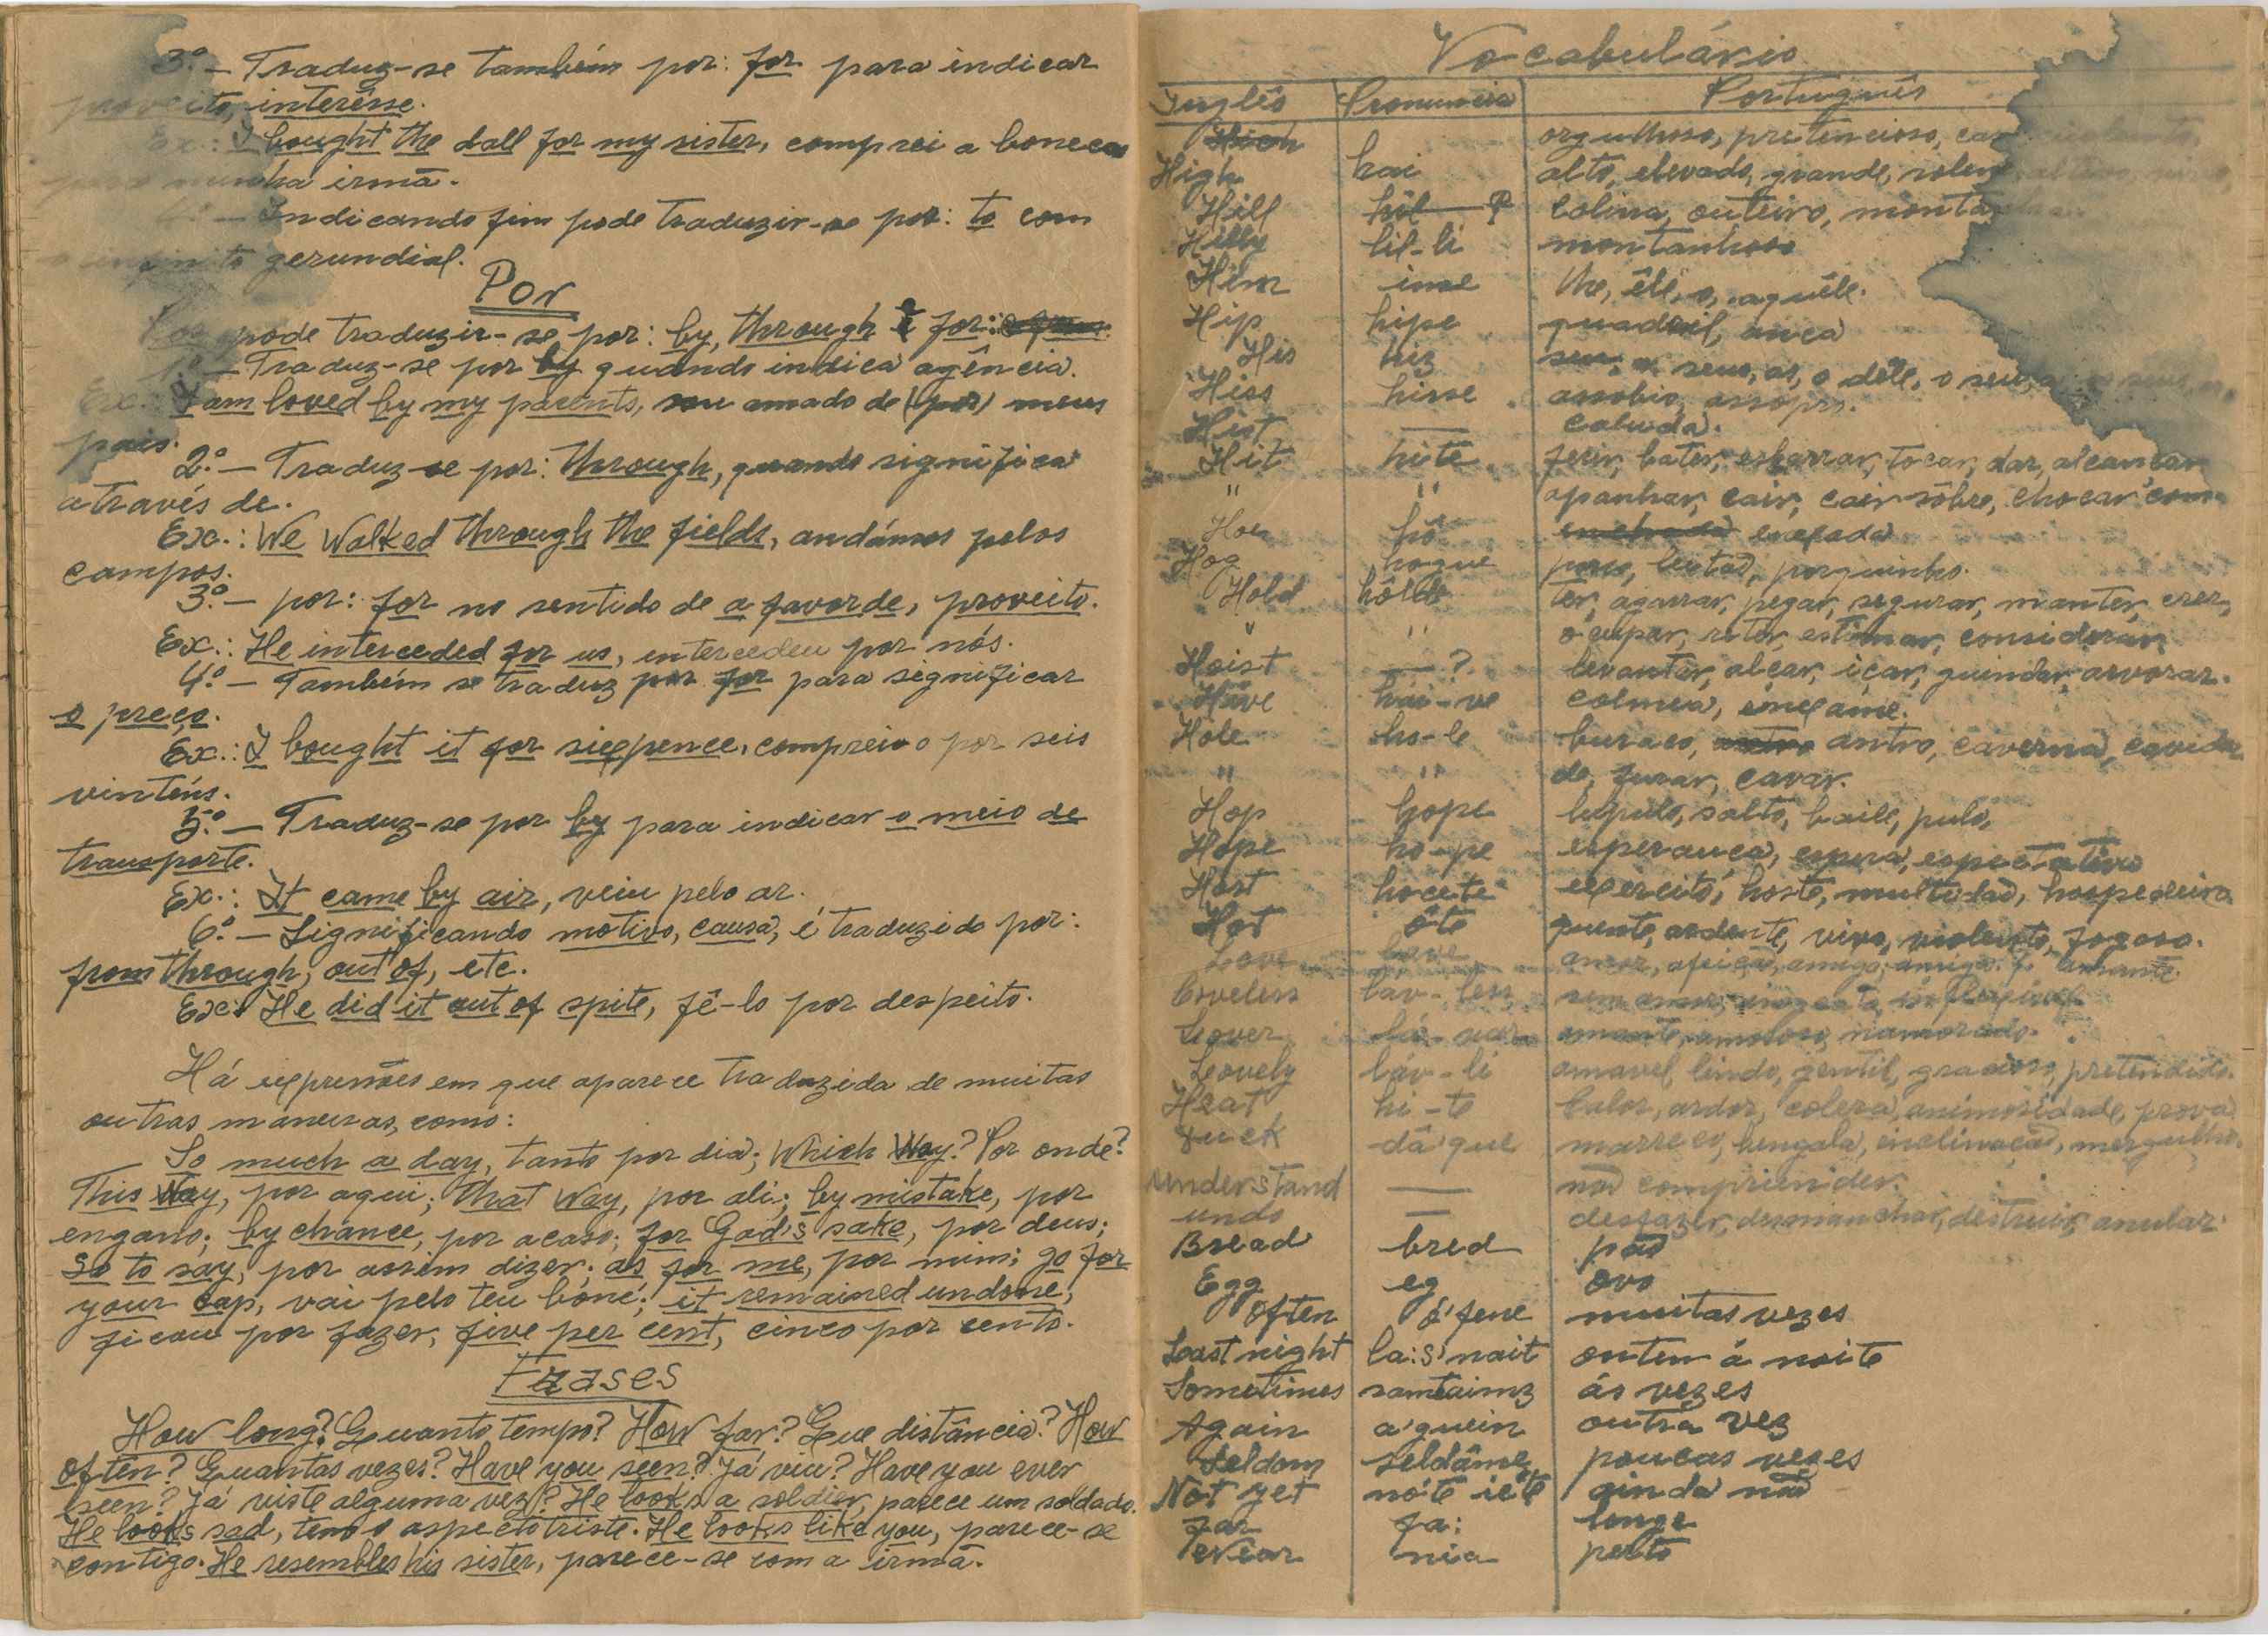 3.º — Traduz-se também por: for para indicar
proveito, interêsse.
Ex.: I bought the dall for my sister, comprei a boneca
para minha irmã.
4.º — Indicando fim pode traduzir-se por: to com
o infinito gerundial.
Por
Por pode traduzir-se por: by, through e for:
1.º — Traduz-se por by quando indica agência.
Ex.: I am loved by my parents, sou amado de (por) meus
pais.
2.º — Traduz-se por: through, quando significa
através de.
Ex.: We Walked through the fields, andámos pelos
campos.
3.º — por: for no sentido de a favor de, proveito.
Ex.: He interceded for us, intercedeu por nós.
4.º — Também se traduz por for para significar
o preço.
Ex.: I bought it for siepence, comprei-o por seis
vinténs.
5.º — Traduz-se por by para indicar o meio de
transporte.
Ex.: It came by air, veiu pelo ar.
6.º — Significando motivo, causa, é traduzido por:
from through, out of, etc.
Ex: He did it out of spite, fê-lo por despeito.
Há expressões em que aparece traduzida de muitas
outras maneiras, como:
So much a day, tanto por dia; Which Way? Por onde?
This Way, por aqui; that Way, por ali; by mistake, por
engano; by chance, por acaso; for God's sake, por deus;
So to say, por assim dizer; as for me, por mim; go for
your cap, vai pelo teu boné; it remained undone,
ficou por fazer, five per cent, cinco por cento.
Frases
How long? Quanto tempo? How far? Que distância? How
often? Quantas vezes? Have you seen? Já viu? Have you ever
seen? Já viste alguma vez? He looks a soldier, parece um soldado.
He looks sad, tem o aspecto triste. He looks like you, parece-se
contigo. He resembles his sister, parece-se com a irmã.
Vocabulário
Inglês Pronuncia Português
orgulhoso, pretencioso,
High hai alto, elevado, grande,
Hill hil colina, outeiro, montanha
Hilly lil-li montanhoso
Him ime lhe, êle, o, aquêle.
Hip hipe quadril, anca
His hiz seu, a, seus, as, o dêle, o seu,
Hiss hisse assobio, assopro.
Hist — caluda.
Hit hite ferir, bater, esbarrar, tocar, dar, alcançar
" " apanhar, cair, cair sôbre, chocar com
Hoe hô enxada
Hog hogue porco, leitão, porquinho.
Hold hôlde ter, agarrar, pegar, segurar, manter, crer,
" " ocupar, reter, estimar, considerar
Hoist — ? levantar, alçar, içar, guindar, arvorar.
Hive hai-ve colmeia, enxame.
Hole ho-le buraco, antro, caverna, cavida
" " de, furar, cavar.
Hop hope lúpulo, salto, baile, pulo,
Hope ho-pe esperança, espera, espectativa
Host hoceте exército, hoste, multidão, hospedeiro
Hot óte quente, ardente, vivo, violento, fogoso.
Love lave amor, afeição, amigo, amiga. f. amante
Loveless láv-less sem amor, inflexivel
Lover amante, amoroso, namorado.
Lovely láv-li amavel, lindo, gentil, gracioso, pretendido.
Heat hi-te calor, ardor, colera, animosidade, prova
dâ'que marreco, bengala, inclinação, mergulho.
Understand — não compriender.
undo — desfazer, desmanchar, destruir, anular
Bread bred pão
Egg eg ovo
Often ó'fene muitas vezes
Last night la:s' nait ontem á noite
Sometimes samtaimz ás vezes
Again a'guein outra vez
Seldom seldâme poucas vezes
Not yet nóte iéte ainda não
Far fa: longe
Near nia perto